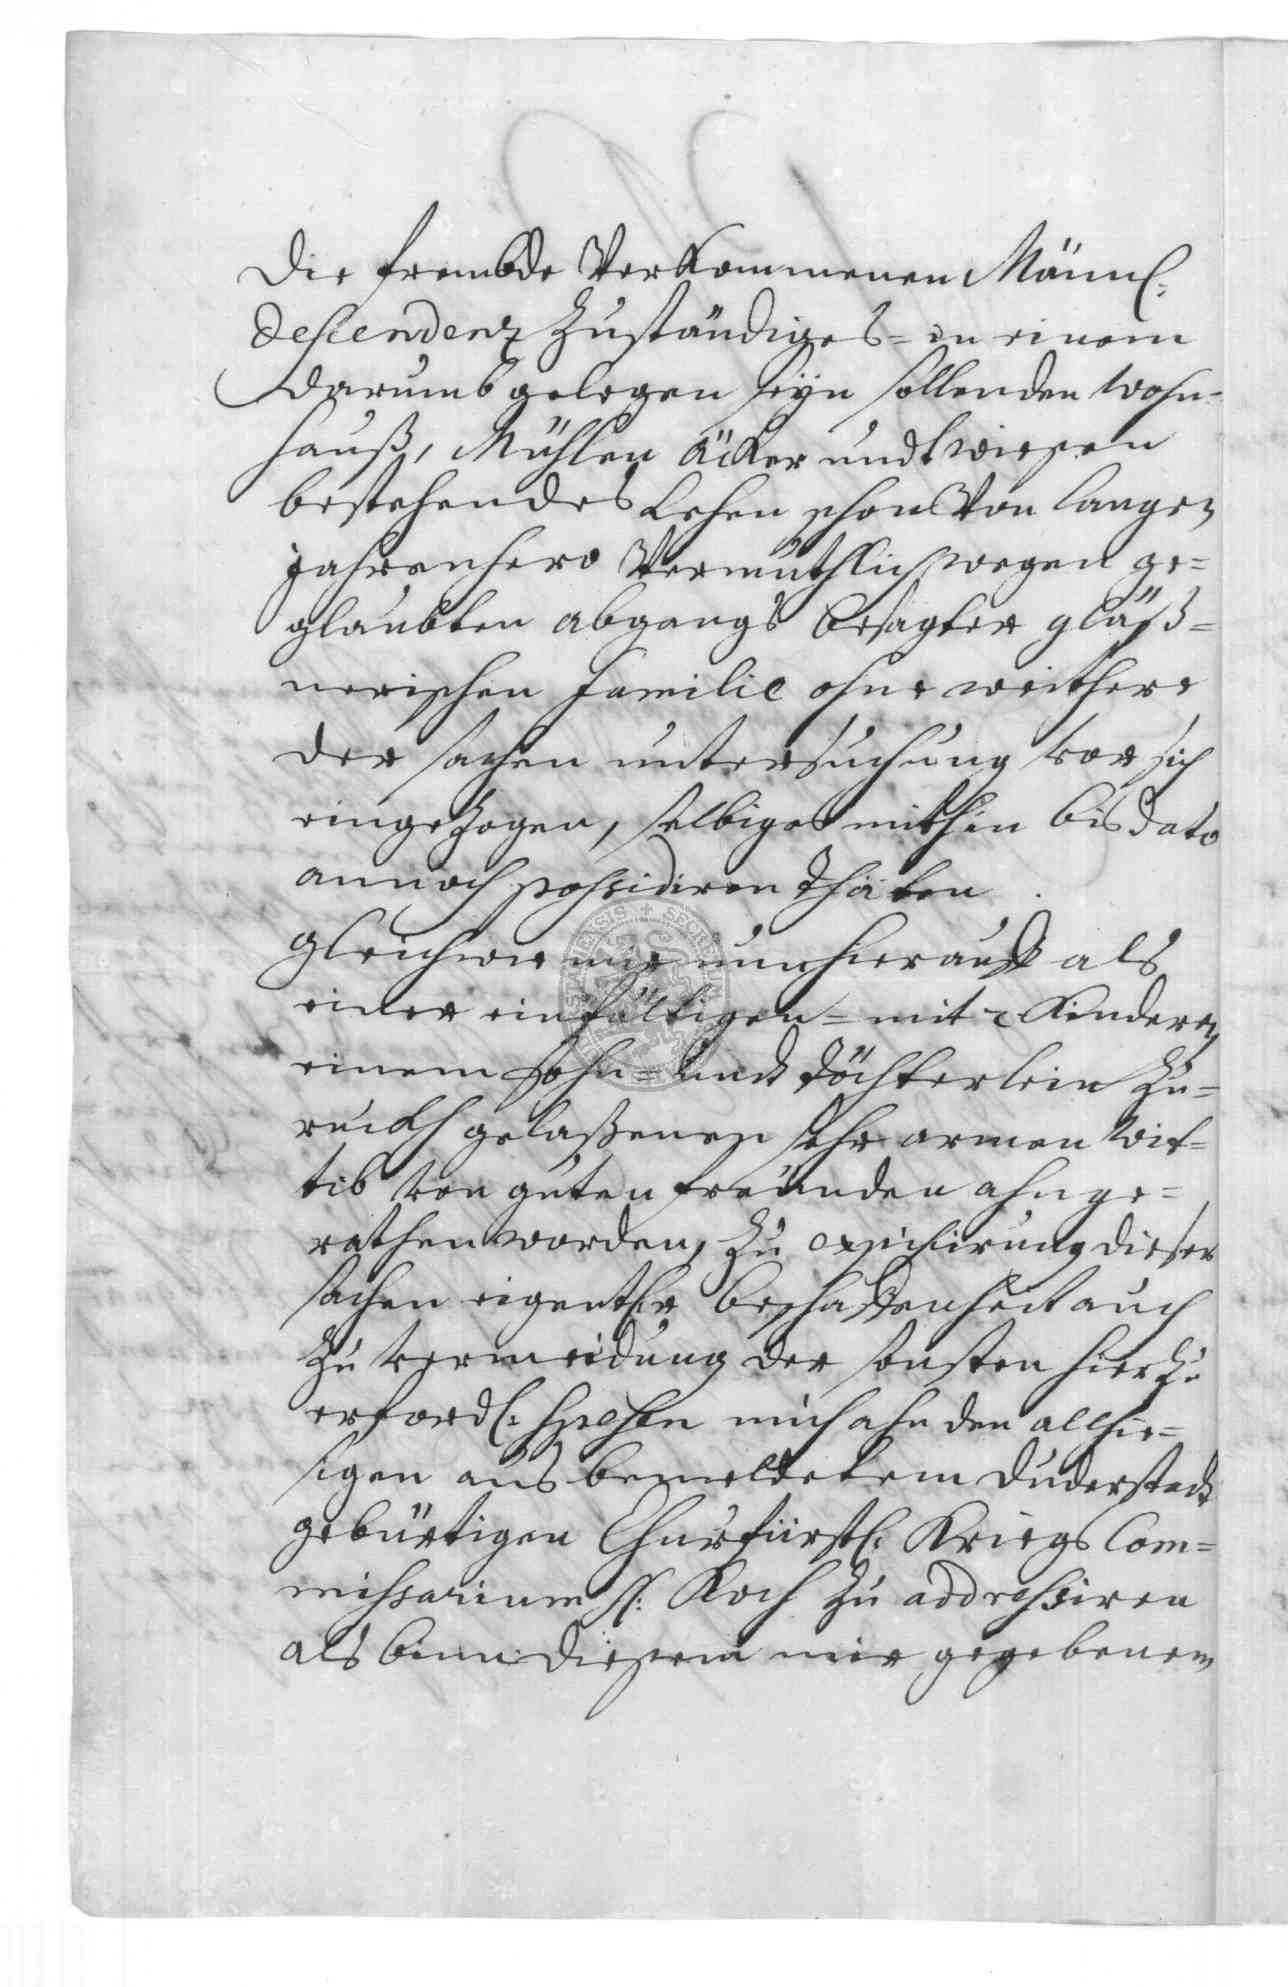 die frembde Verkommenen Männl:
descendenz zuständiges= in einem
darumb gelegen seyn sollenden wohn-
hauß, Mühlen äcker undt wiesen
bestehendes Lehen schon Von langen
jahren hero Vermuthlich wegen ge=
glaubten abgangs besagter gläß=
nerischen familie ohne weithere
der sachen untersuchung vor sich
eingezogen, selbiges mithin bis dato
annoch possidiren thäten.
Gleichwie mir nun hierauff als
einer einfältigen= mit 2 Kindern
einem sohn= undt döchterlein zu=
ruckh gelaßenen sehr armen wit=
tib von guten freunden ahn ge=
rathen worden, zu dießer
sachen eigentl(er) beschaffenheit auch
zu vermeidung der sonsten hierzu
erfordl: speßen mich ahn den allhie=
sigen aus bemeldetem Duderstadt
gebürtigen Churfürstl: Kriegs Com=
missarium H: Koch zu addressiren
als bin diesem mir gegebenem